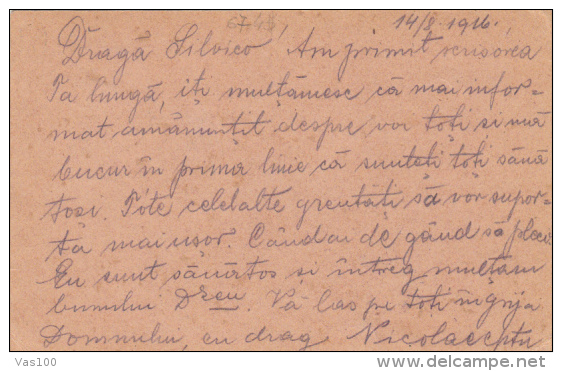 67,48
14/8. 1916,
Dragă Silvico! Am primit scrisorea
Ta lungă, iți mulțămesc că mai infor-
mat amănuntit despre voi toți si mă
bucur în prima linie că sunteți toți sănă
toși. Tote celelalte greutăți să vor supor-
ta mai usor. Când ai de gând să pleci
Eu sunt sănătos și întreg mulțam
bunului Dzeu. Vă las pe toti în grija
Domnului, cu drag Nicolae
Vas100
delcampe.net